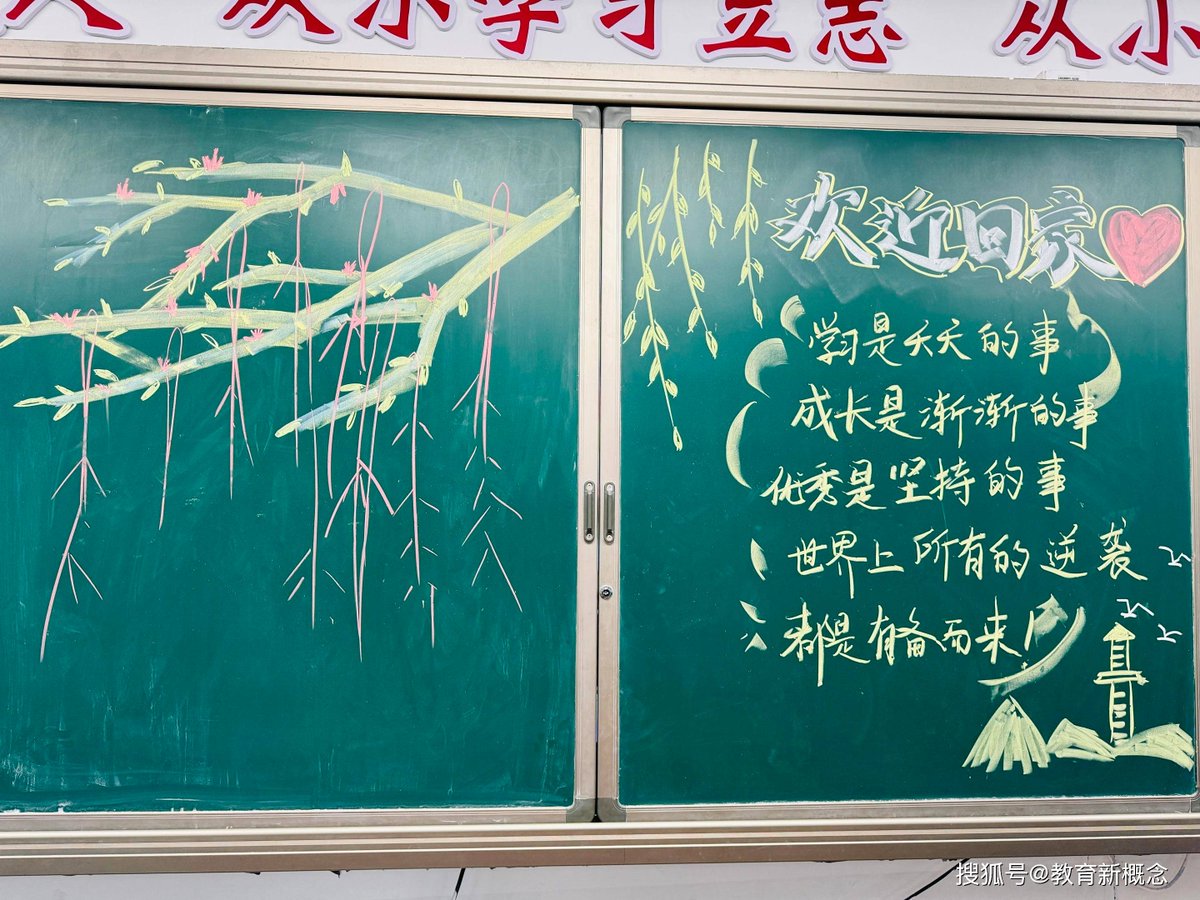 人 从小学习立志 从小
欢迎回家
学习是天天的事
成长是渐渐的事
优秀是坚持的事
世界上所有的逆袭
都是有备而来!
搜狐号@教育新概念